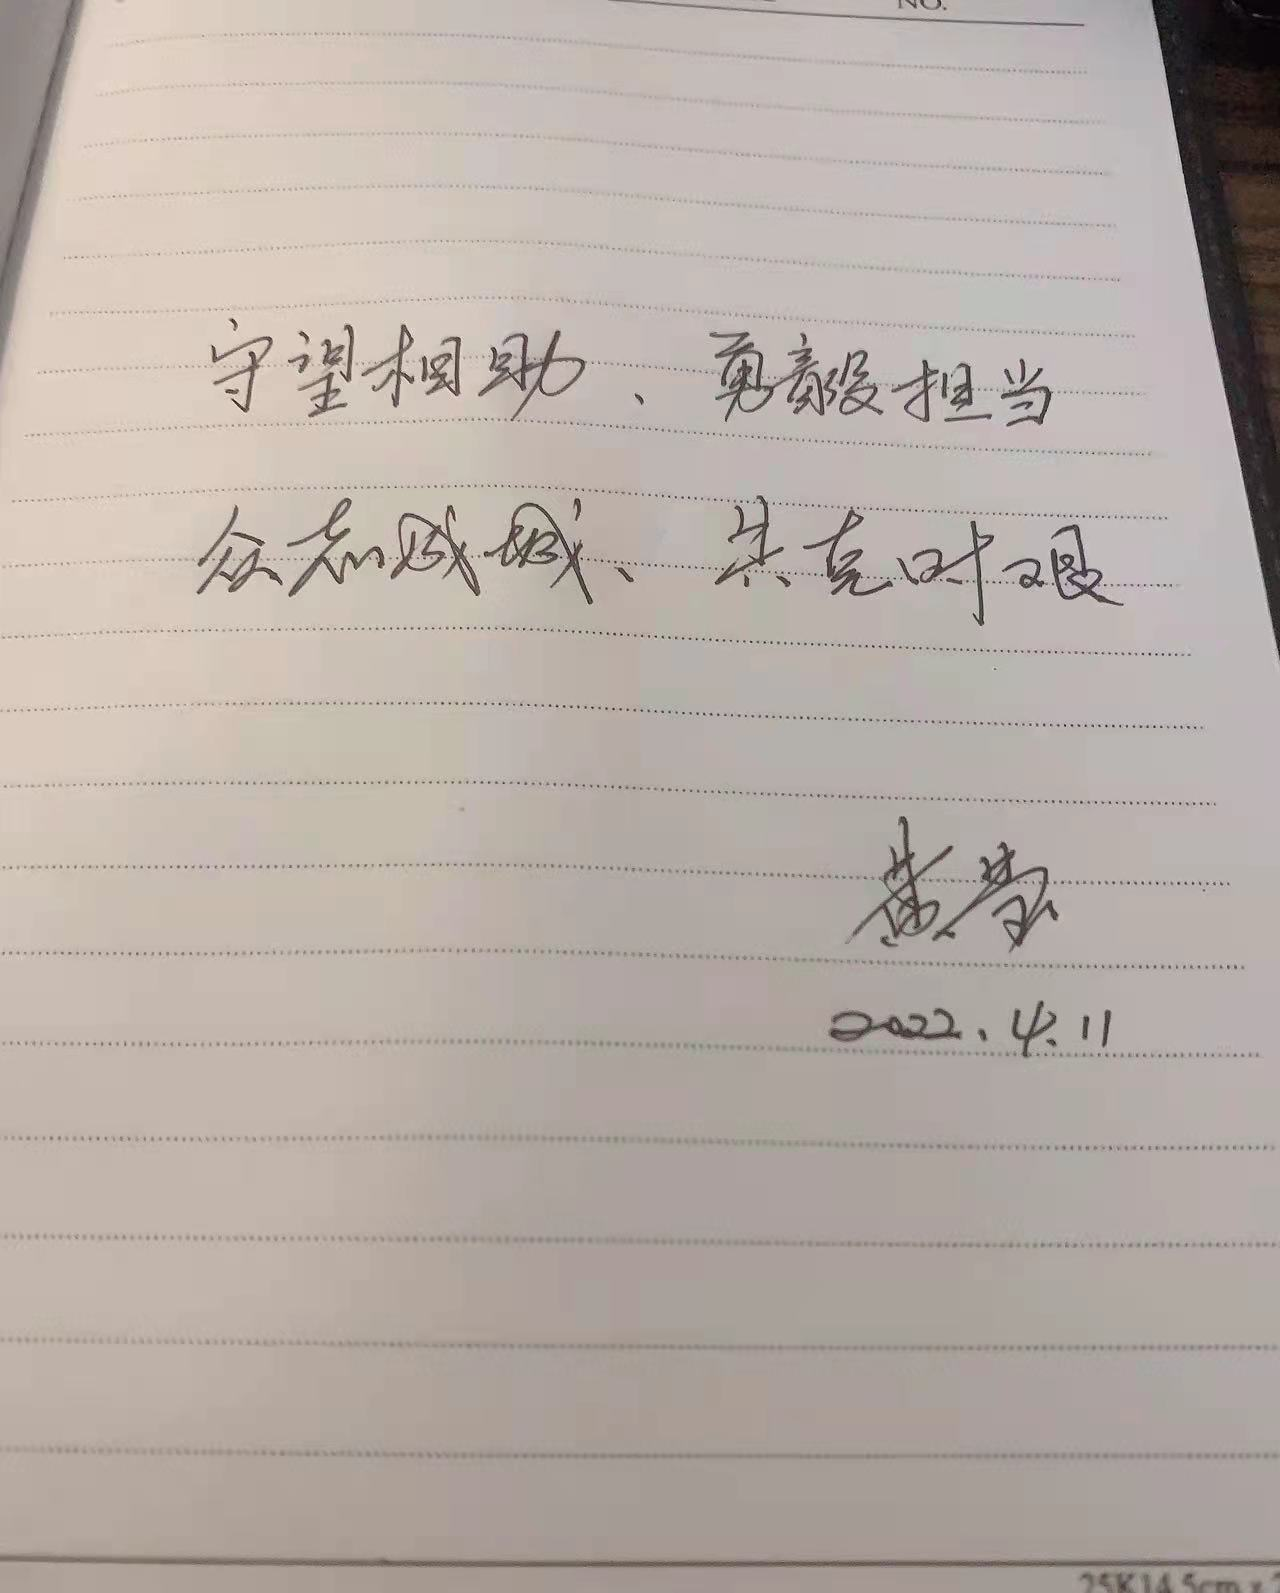 NO.
守望相助、勇毅担当
众志成城、共克时艰
2022.4.11
25K14.5cm×